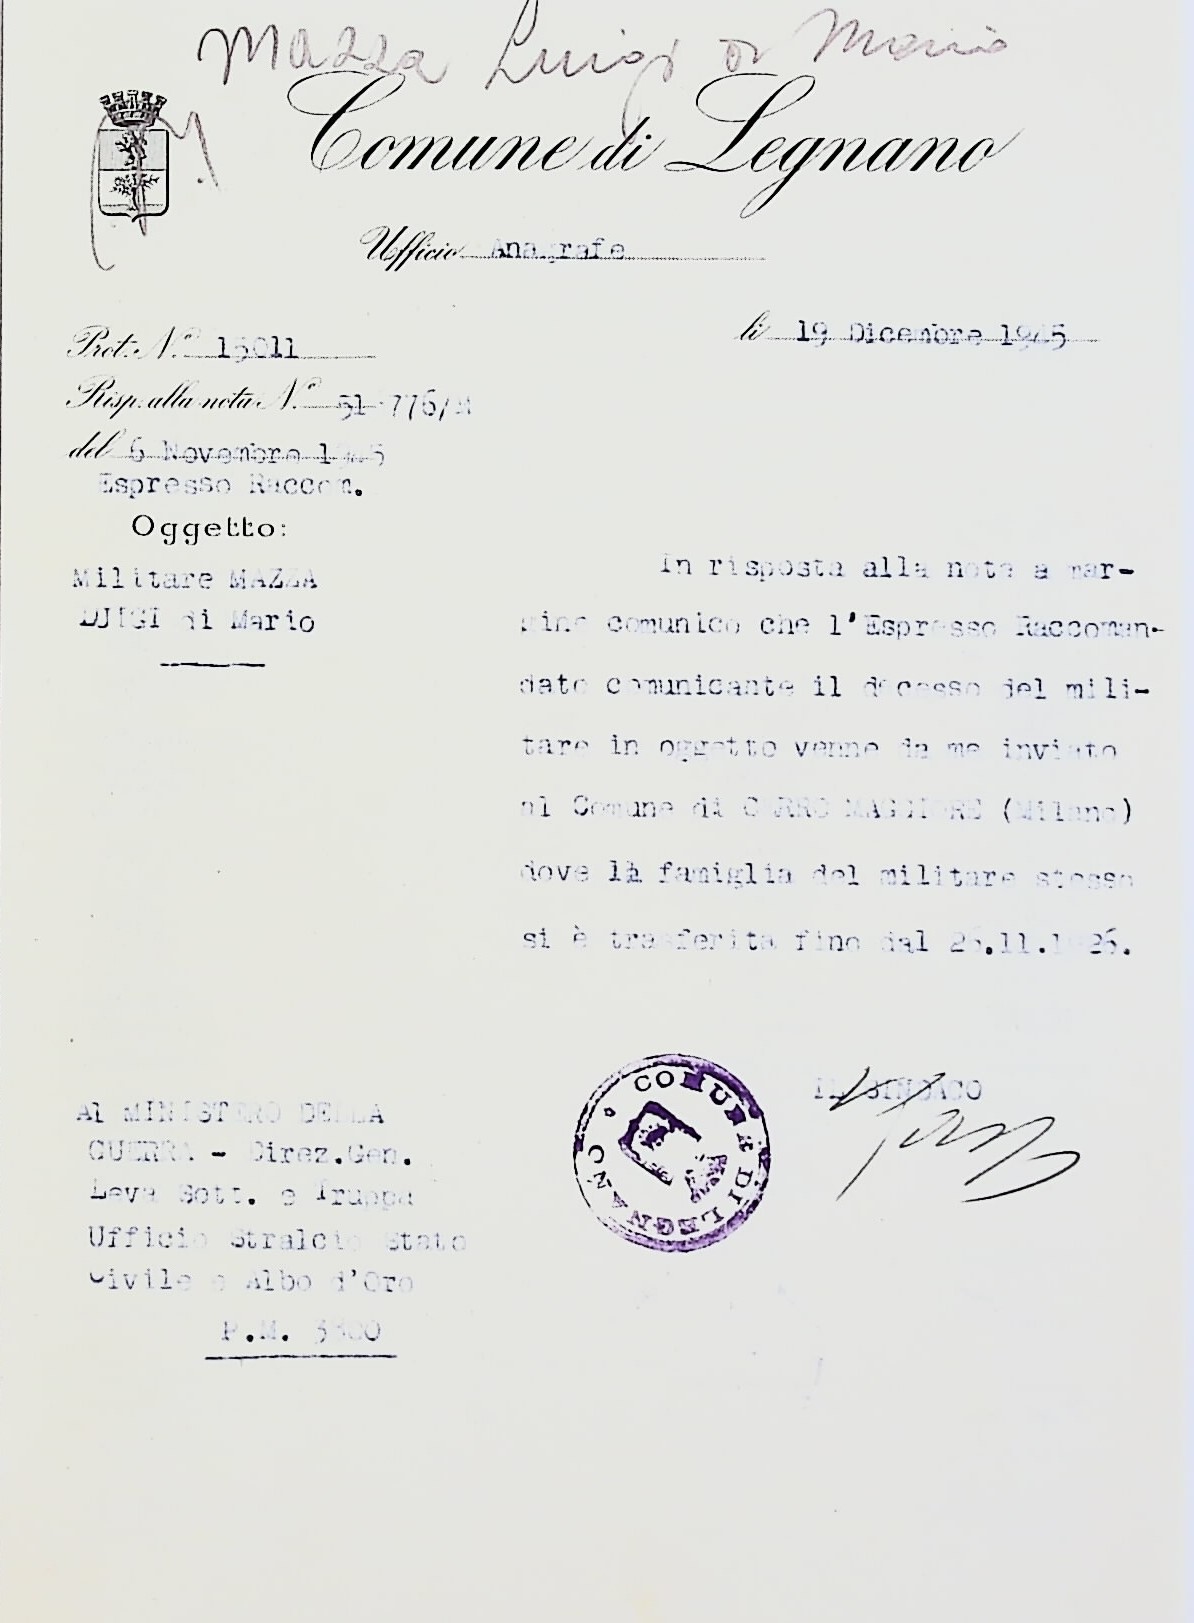 Mazza Luigi di Mario
Comune di Legnano
Ufficio Anagrafe
li 19 Dicembre 1945
Prot. N.° 15011
Risp. alla nota N.° 51-776/M
del 6 Novembre 1945
Espresso Raccom.
Oggetto:
Militare MAZZA
LUIGI di Mario
In risposta alla nota a mar-
gine comunico che l'Espresso Raccoman-
dato comunicante il decesso del mili-
tare in oggetto venne da me inviato
al Comune di CERRO MAGGIORE (Milano)
dove la famiglia del militare stesso
si è trasferita fino dal 26.11.1926.
IL SINDACO
COMUNE DI LEGNANO
Al MINISTERO DELLA
GUERRA - Direz.Gen.
Leva Sott. e Truppa
Ufficio Stralcio Stato
Civile e Albo d'Oro
P.M. 3800